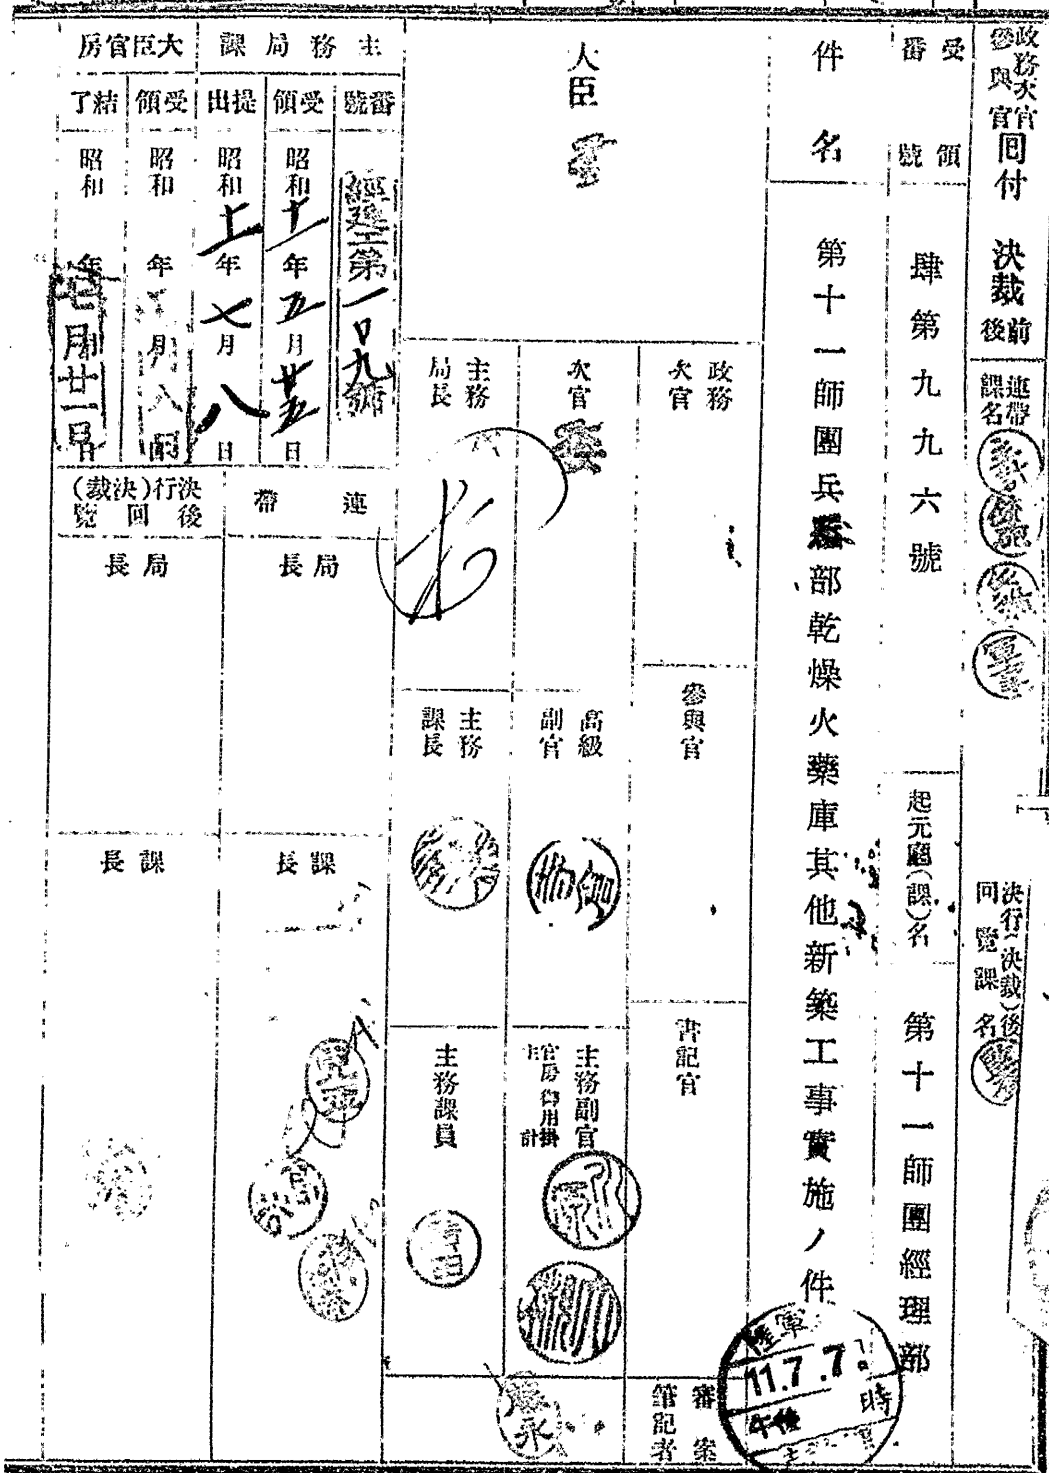 政務次官
參與官
囘付
決裁
前
後
連帶
課名
決行(決裁)後
回覽課名
受領
番號
肆第九九六號
起元廳(課)名
第十一師團經理部
件名
第十一師團兵器部乾燥火藥庫其他新築工事實施ノ件
陸軍
11.7.7
午後
時
大臣
政務
次官
參與官
書記官
審案
筆記者
次官
高級
副官
主務副官
官房御用掛
主計
主務
局長
主務
課長
主務課員
主務局課
番號
第一〇九號
受領
昭和十一年五月廿五日
提出
昭和十一年七月八日
大臣官房
受領
昭和
年
月八日
結了
昭和
年
七月廿一日
連帶
局長
課長
決行(決裁)
後回覽
局長
課長